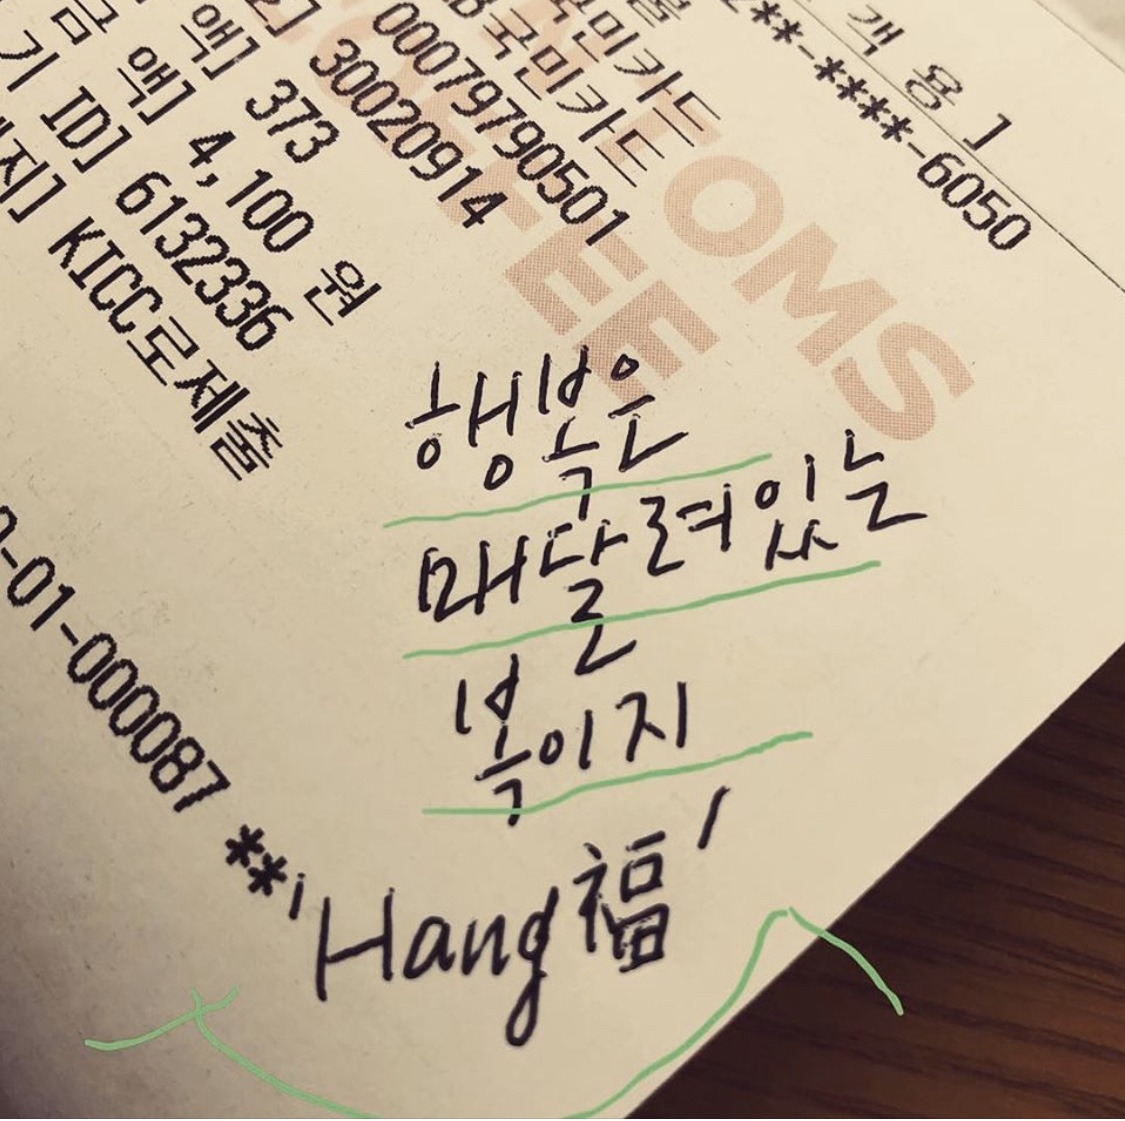 객 용 ]
**-****-6050
국민카드
국민카드
00079790501
30020914
액] 373
액] 4,100 원
ID] 6132336
지] KICC로제출
-01-000087 **
NEOMS
COFFEE
행복은
매달려있는
복이지
'Hang福'